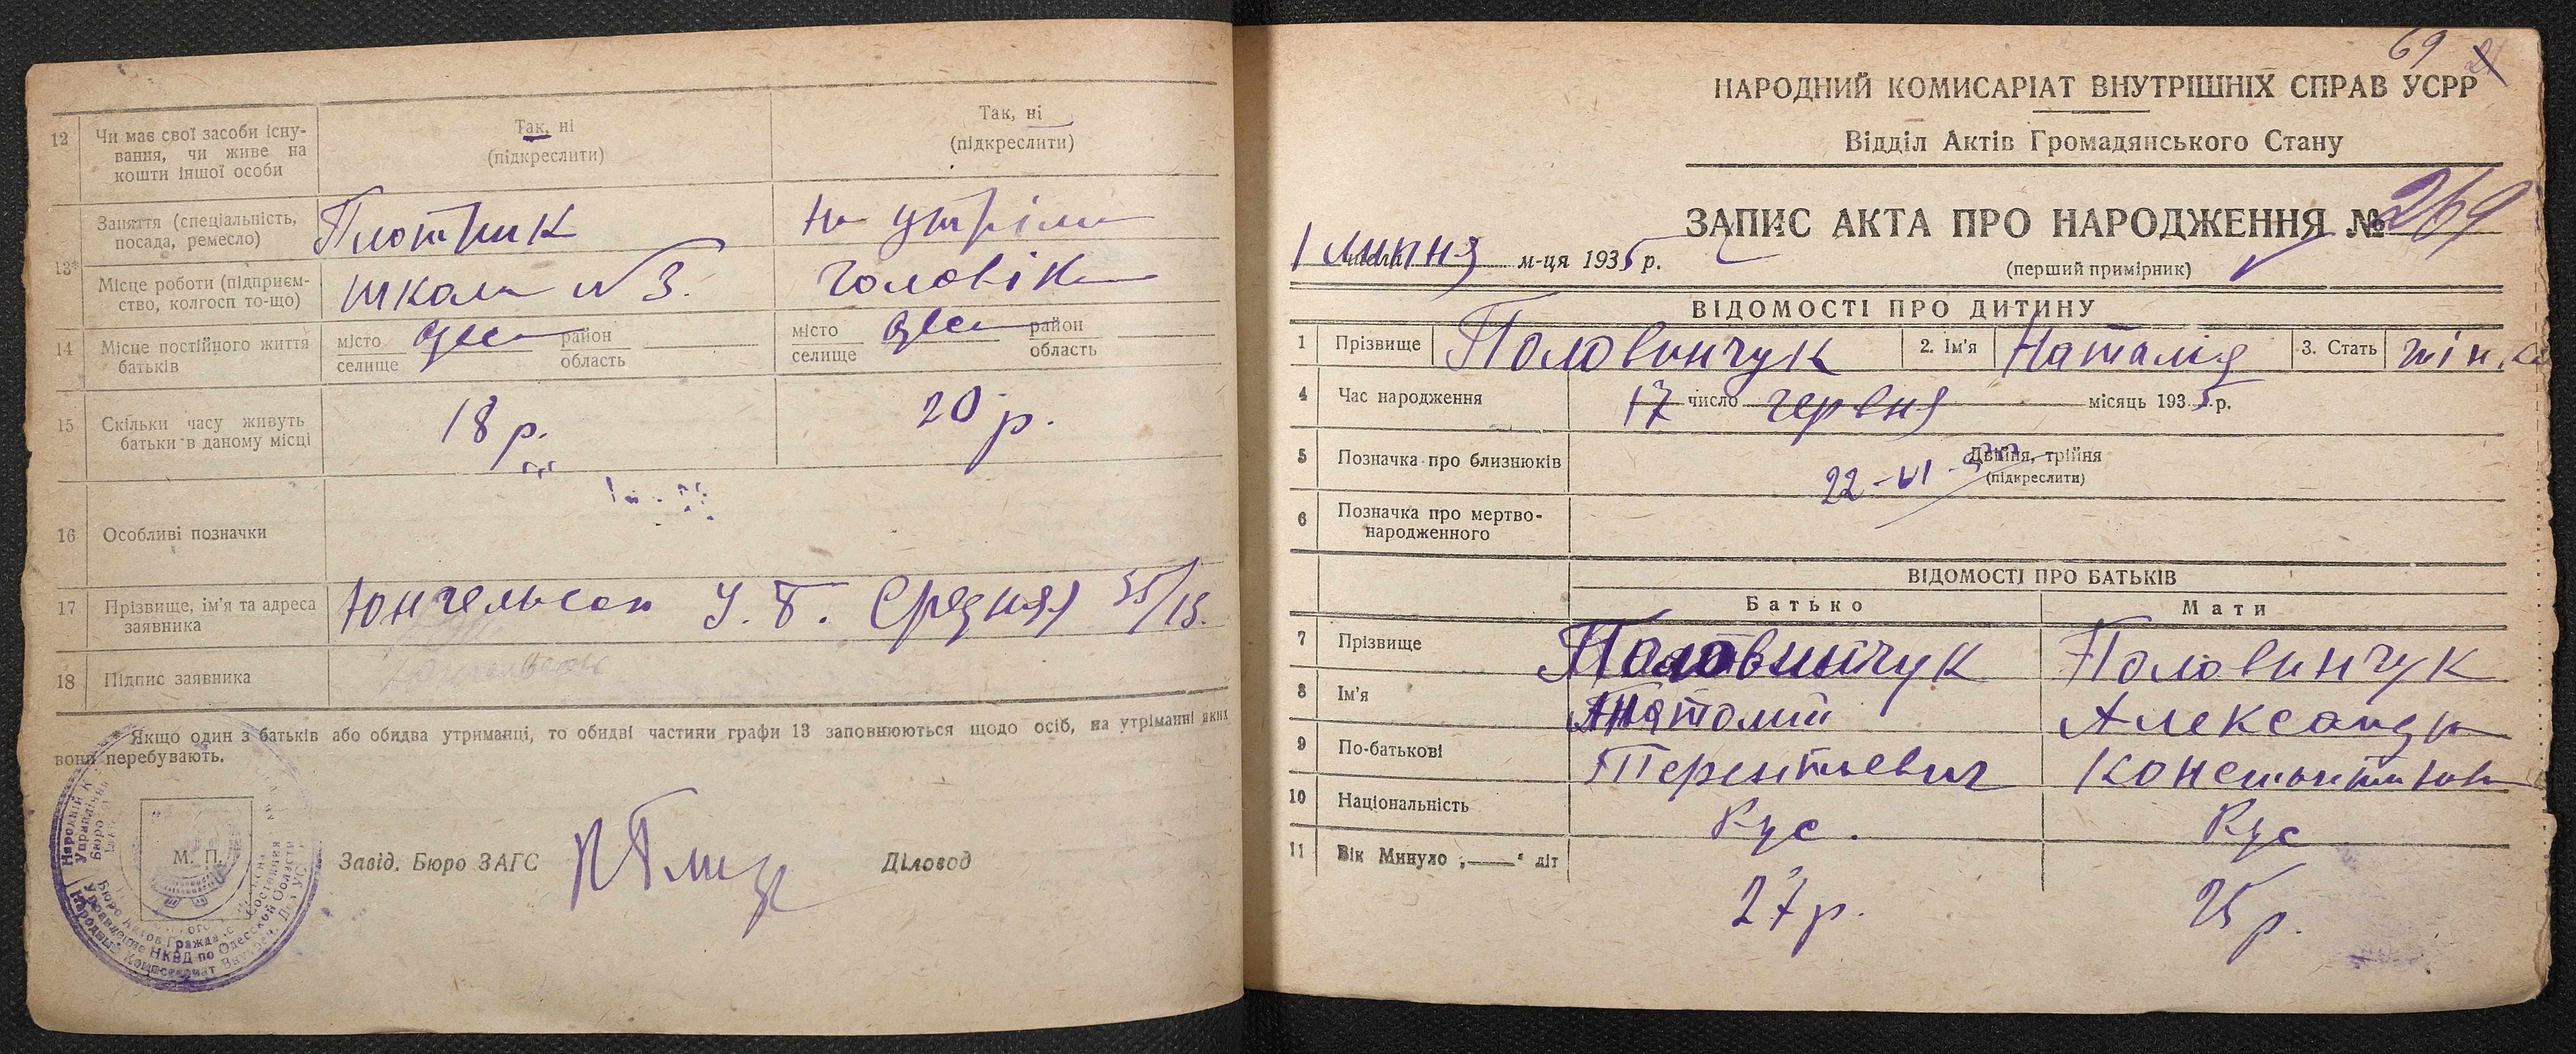 12 Чи має свої засоби існу-
вання, чи живе на
кошти іншої особи
Так, ні
(підкреслити)
Так, ні
(підкреслити)
13*
Заняття (спеціальність,
посада, ремесло)
Плотник
на утрім
Місце роботи (підприєм-
ство, колгосп то-що)
школа № 3.
чоловіка
14 Місце постійного життя
батьків
місто
селище
Одеса
район
область
місто
селище
Одеса
район
область
15 Скільки часу живуть
батьки в даному місці
18 р.
20 р.
16 Особливі позначки
17 Прізвище, ім'я та адреса
заявника
Юнгельсон У. Б. Средняя 35/15.
18 Підпис заявника
* Якщо один з батьків або обидва утриманці, то обидві частини графи 13 заповнюються щодо осіб, на утриманні яких
вони перебувають.
М. П.
Завід. Бюро ЗАГС
Діловод
69
21
НАРОДНИЙ КОМИСАРІАТ ВНУТРІШНІХ СПРАВ УСРР
Відділ Актів Громадянського Стану
ЗАПИС АКТА ПРО НАРОДЖЕННЯ № 269
1 липня м-ця 1935 р.
(перший примірник)
ВІДОМОСТІ ПРО ДИТИНУ
1 Прізвище Половинчук 2. Ім'я Наталія 3. Стать жін.
4 Час народження 17 число червня місяць 1935 р.
5 Позначка про близнюків
Двійня, трійня
(підкреслити)
22-VI
6 Позначка про мертво-
народженного
ВІДОМОСТІ ПРО БАТЬКІВ
Батько
Мати
7 Прізвище Половинчук Половинчук
8 Ім'я Анатолий Александра
9 По-батькові Терентьевич Константиновна
10 Національність Рус. Рус
11 Вік Минуло „—“ літ
27 р. 25 р.